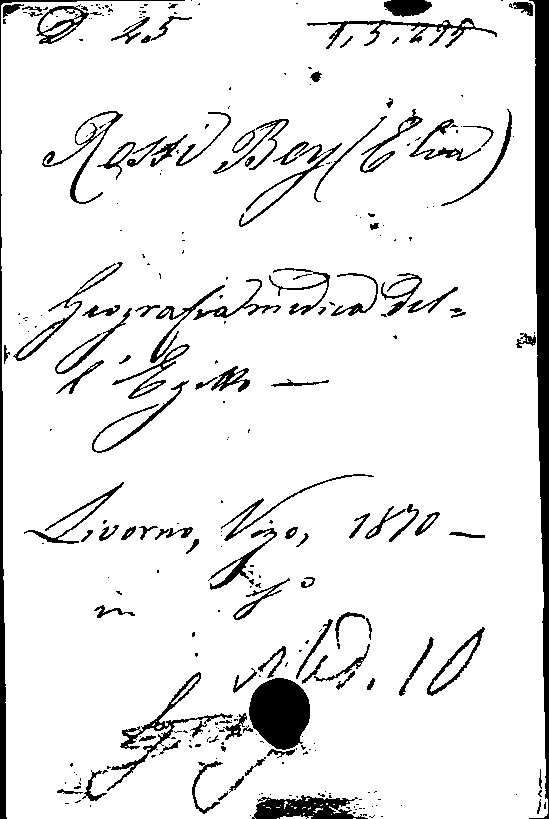 D. 25 1.5.299
Rossi Bey (Elia)
Geografia medica del=
l'Egitto —
Livorno, Vigo, 1870 —
in 8º
Med. 10